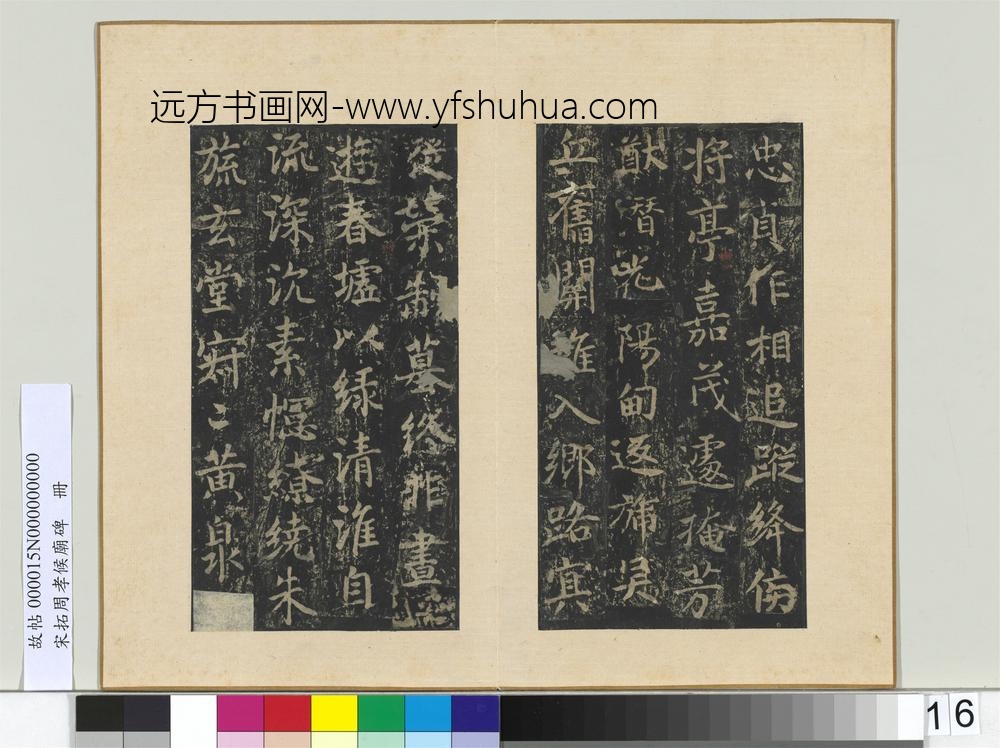 远方书画网-www.yfshuhua.com
忠貞作相追蹤絳侯
將亭嘉茂遽掩芳
猷潛光陽甸返旆吳
丘舊關雖入鄉路冥
從榮制墓終非晝
遊春墟以緑清淮自
流深沈素幰繚繞朱
旒玄堂寂〻黃泉
故帖 000015N000000000
宋拓周孝侯廟碑 冊
16